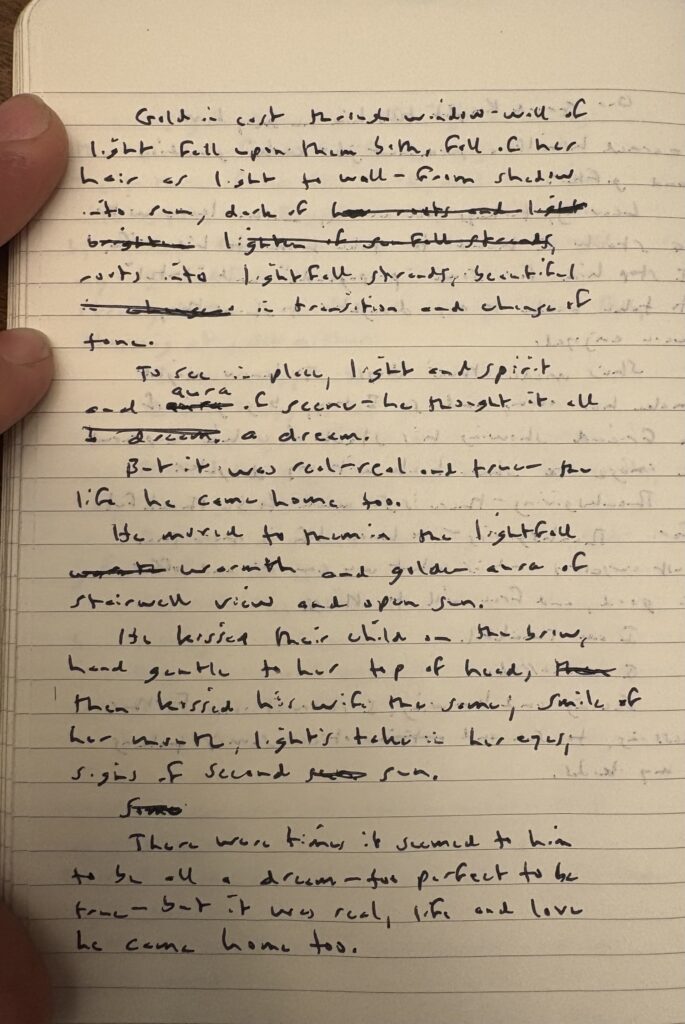 Gold in cast through window-wall of
light fell upon them both, fell of her
hair as light to wall-from shadow
into sun, dark of her roots and light
brighten lighten of sunfall streads,
roots into lightfall streads, beautiful
in changes in transition and change of
tone.
To see in place, light and spirit
aura
and aura of scene-he thought it all
a dream. a dream.
But it was real-real and true-the
life he came home too.
He moved to them in the lightfall
warmth and golden aura of
stairwell view and open sun.
He kissed their child on the brow,
hand gentle to her top of head, then
then kissed his wife the same, smile of
her mouth, light's take in her eyes,
signs of second sun.
Some
There were times it seemed to him
to be all a dream-too perfect to be
true-but it was real, life and love
he came home too.